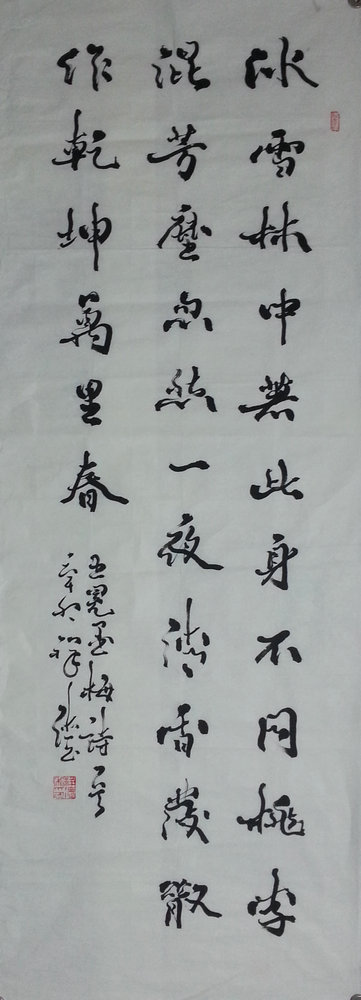 冰雪林中著此身不同桃李
混芳塵忽然一夜清香發散
作乾坤萬里春
王冕墨梅詩一首